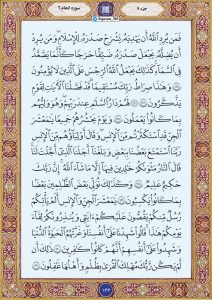 جزء ۸
سورة الانعام ٦
فَمَن يُرِدِ ٱللَّهُ أَن يَهْدِيَهُۥ يَشْرَحْ صَدْرَهُۥ لِلْإِسْلَٰمِ وَمَن يُرِدْ
أَن يُضِلَّهُۥ يَجْعَلْ صَدْرَهُۥ ضَيِّقًا حَرَجًا كَأَنَّمَا يَصَّعَّدُ
فِى ٱلسَّمَآءِ كَذَٰلِكَ يَجْعَلُ ٱللَّهُ ٱلرِّجْسَ عَلَى ٱلَّذِينَ لَا يُؤْمِنُونَ
١٢٥ وَهَٰذَا صِرَٰطُ رَبِّكَ مُسْتَقِيمًا قَدْ فَصَّلْنَا ٱلْءَايَٰتِ لِقَوْمٍ
يَذَّكَّرُونَ ١٢٦ لَهُمْ دَارُ ٱلسَّلَٰمِ عِندَ رَبِّهِمْ وَهُوَ وَلِيُّهُم
بِمَا كَانُوا۟ يَعْمَلُونَ ١٢٧ وَيَوْمَ يَحْشُرُهُمْ جَمِيعًا يَٰمَعْشَرَ
ٱلْجِنِّ قَدِ ٱسْتَكْثَرْتُم مِّنَ ٱلْإِنسِ وَقَالَ أَوْلِيَآؤُهُم مِّنَ ٱلْإِنسِ
رَبَّنَا ٱسْتَمْتَعَ بَعْضُنَا بِبَعْضٍ وَبَلَغْنَآ أَجَلَنَا ٱلَّذِىٓ أَجَّلْتَ لَنَا
قَالَ ٱلنَّارُ مَثْوَىٰكُمْ خَٰلِدِينَ فِيهَآ إِلَّا مَا شَآءَ ٱللَّهُ إِنَّ رَبَّكَ
حَكِيمٌ عَلِيمٌ ١٢٨ وَكَذَٰلِكَ نُوَلِّى بَعْضَ ٱلظَّٰلِمِينَ بَعْضًۢا
بِمَا كَانُوا۟ يَكْسِبُونَ ١٢٩ يَٰمَعْشَرَ ٱلْجِنِّ وَٱلْإِنسِ أَلَمْ يَأْتِكُمْ
رُسُلٌ مِّنكُمْ يَقُصُّونَ عَلَيْكُمْ ءَايَٰتِى وَيُنذِرُونَكُمْ لِقَآءَ
يَوْمِكُمْ هَٰذَا قَالُوا۟ شَهِدْنَا عَلَىٰٓ أَنفُسِنَا وَغَرَّتْهُمُ ٱلْحَيَوٰةُ ٱلدُّنْيَا
وَشَهِدُوا۟ عَلَىٰٓ أَنفُسِهِمْ أَنَّهُمْ كَانُوا۟ كَٰفِرِينَ ١٣٠ ذَٰلِكَ أَن
لَّمْ يَكُن رَّبُّكَ مُهْلِكَ ٱلْقُرَىٰ بِظُلْمٍ وَأَهْلُهَا غَٰفِلُونَ ١٣١
١٤٤